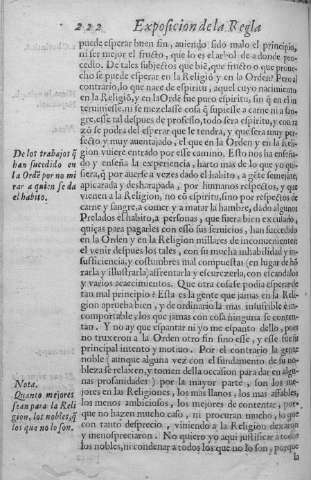 222 Exposicion de la Regla
puede esperar buen fin, auiendo sido malo el principio,
ni ser mejor el fructo, que lo es el arbol de a donde pro-
cedio. De tales subjectos que biē, que fructo o que proue-
cho se puede esperar en la Religiō y en la Orden? Pero al
contrario, lo que nace de espiritu, aquel cuyo nacimiento
en la Religiō, y en la Ordē fue puro espiritu, sin q̃ en el in
teruiniesse, ni se mezclasse cosa q̃ supiesse a carne ni a san-
gre, esse tal despues de professo, todo sera espiritu, y con ra
zō se podra del esperar que le tendra, y que sera muy per-
fecto y muy auentajado, el que en la Orden y en la Reli-
gion vuiere entrado por esse camino. Esto nos ha enseña
do y enseña la experiencia, harto mas de lo que yo qui-
siera, q̃ por auerse a vezes dado el habito, a gēte semejāte,
apicarada y desharapada, por humanos respectos, y que
vienen a la Religion, no cō espiritu, sino por respectos de
carne y sangre, a comer y a matar la hambre, dādo algunos
Prelados el habito, a personas, que fuera bien excusado,
quiças para pagarles con esso sus seruicios, han succedido
en la Orden y en la Religion millares de inconuenientes
el venir despues los tales, con su mucha inhabilidad y in-
sufficiencia, y costumbres mal compuestas (en lugar de hō
rarla y illustrarla) a affrentarla y escurezerla, con escandalos
y varios acaecimientos. Que otra cosa se podia esperar de
tan mal principio? Esta es la gente que jamas en la Reli-
gion prueba bien, y de ordinario la mas insufrible e in-
comportable, los que jamas con cosa ninguna se conten-
tan. Y no ay que espantar ni yo me espanto dello, pues
no truxeron a la Orden otro fin sino esse, y esse fue su
principal intento y motiuo. Por el contrario la gente
noble (aunque alguna vez con el fundamento de su no-
bleza se relaxen, y tomen della occasion para dar en algu-
nas profanidades) por la mayor parte, son los me-
jores en las Religiones, los mas llanos, los mas affables,
los menos ambiciosos, los mejores de contentar, por-
que no hazen mucho caso, ni procuran mucho, lo que
con tanto desprecio, viniendo a la Religion dexaron
y menospreciaron. No quiero yo aqui justificar a todos
los nobles, ni condenar a todos los que no lo son, porque
la
De los trabajos q̃
han succedido en
la Ordē por no mi
rar a quien se da
el habito.
Nota.
Quanto mejores
sean para la Reli
gion, los nobles, q̃
los que no lo son.